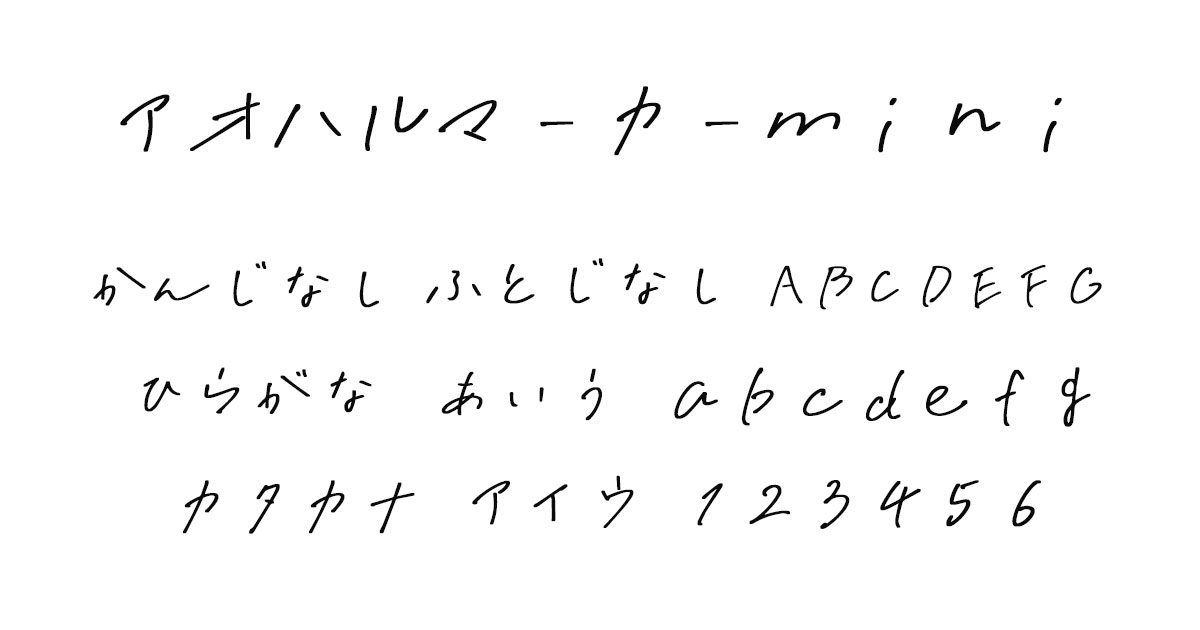 アオハルマーカーmini
かんじなし ふとじなし ABCDEFG
ひらがな あいう abcdefg
カタカナ アイウ 123456